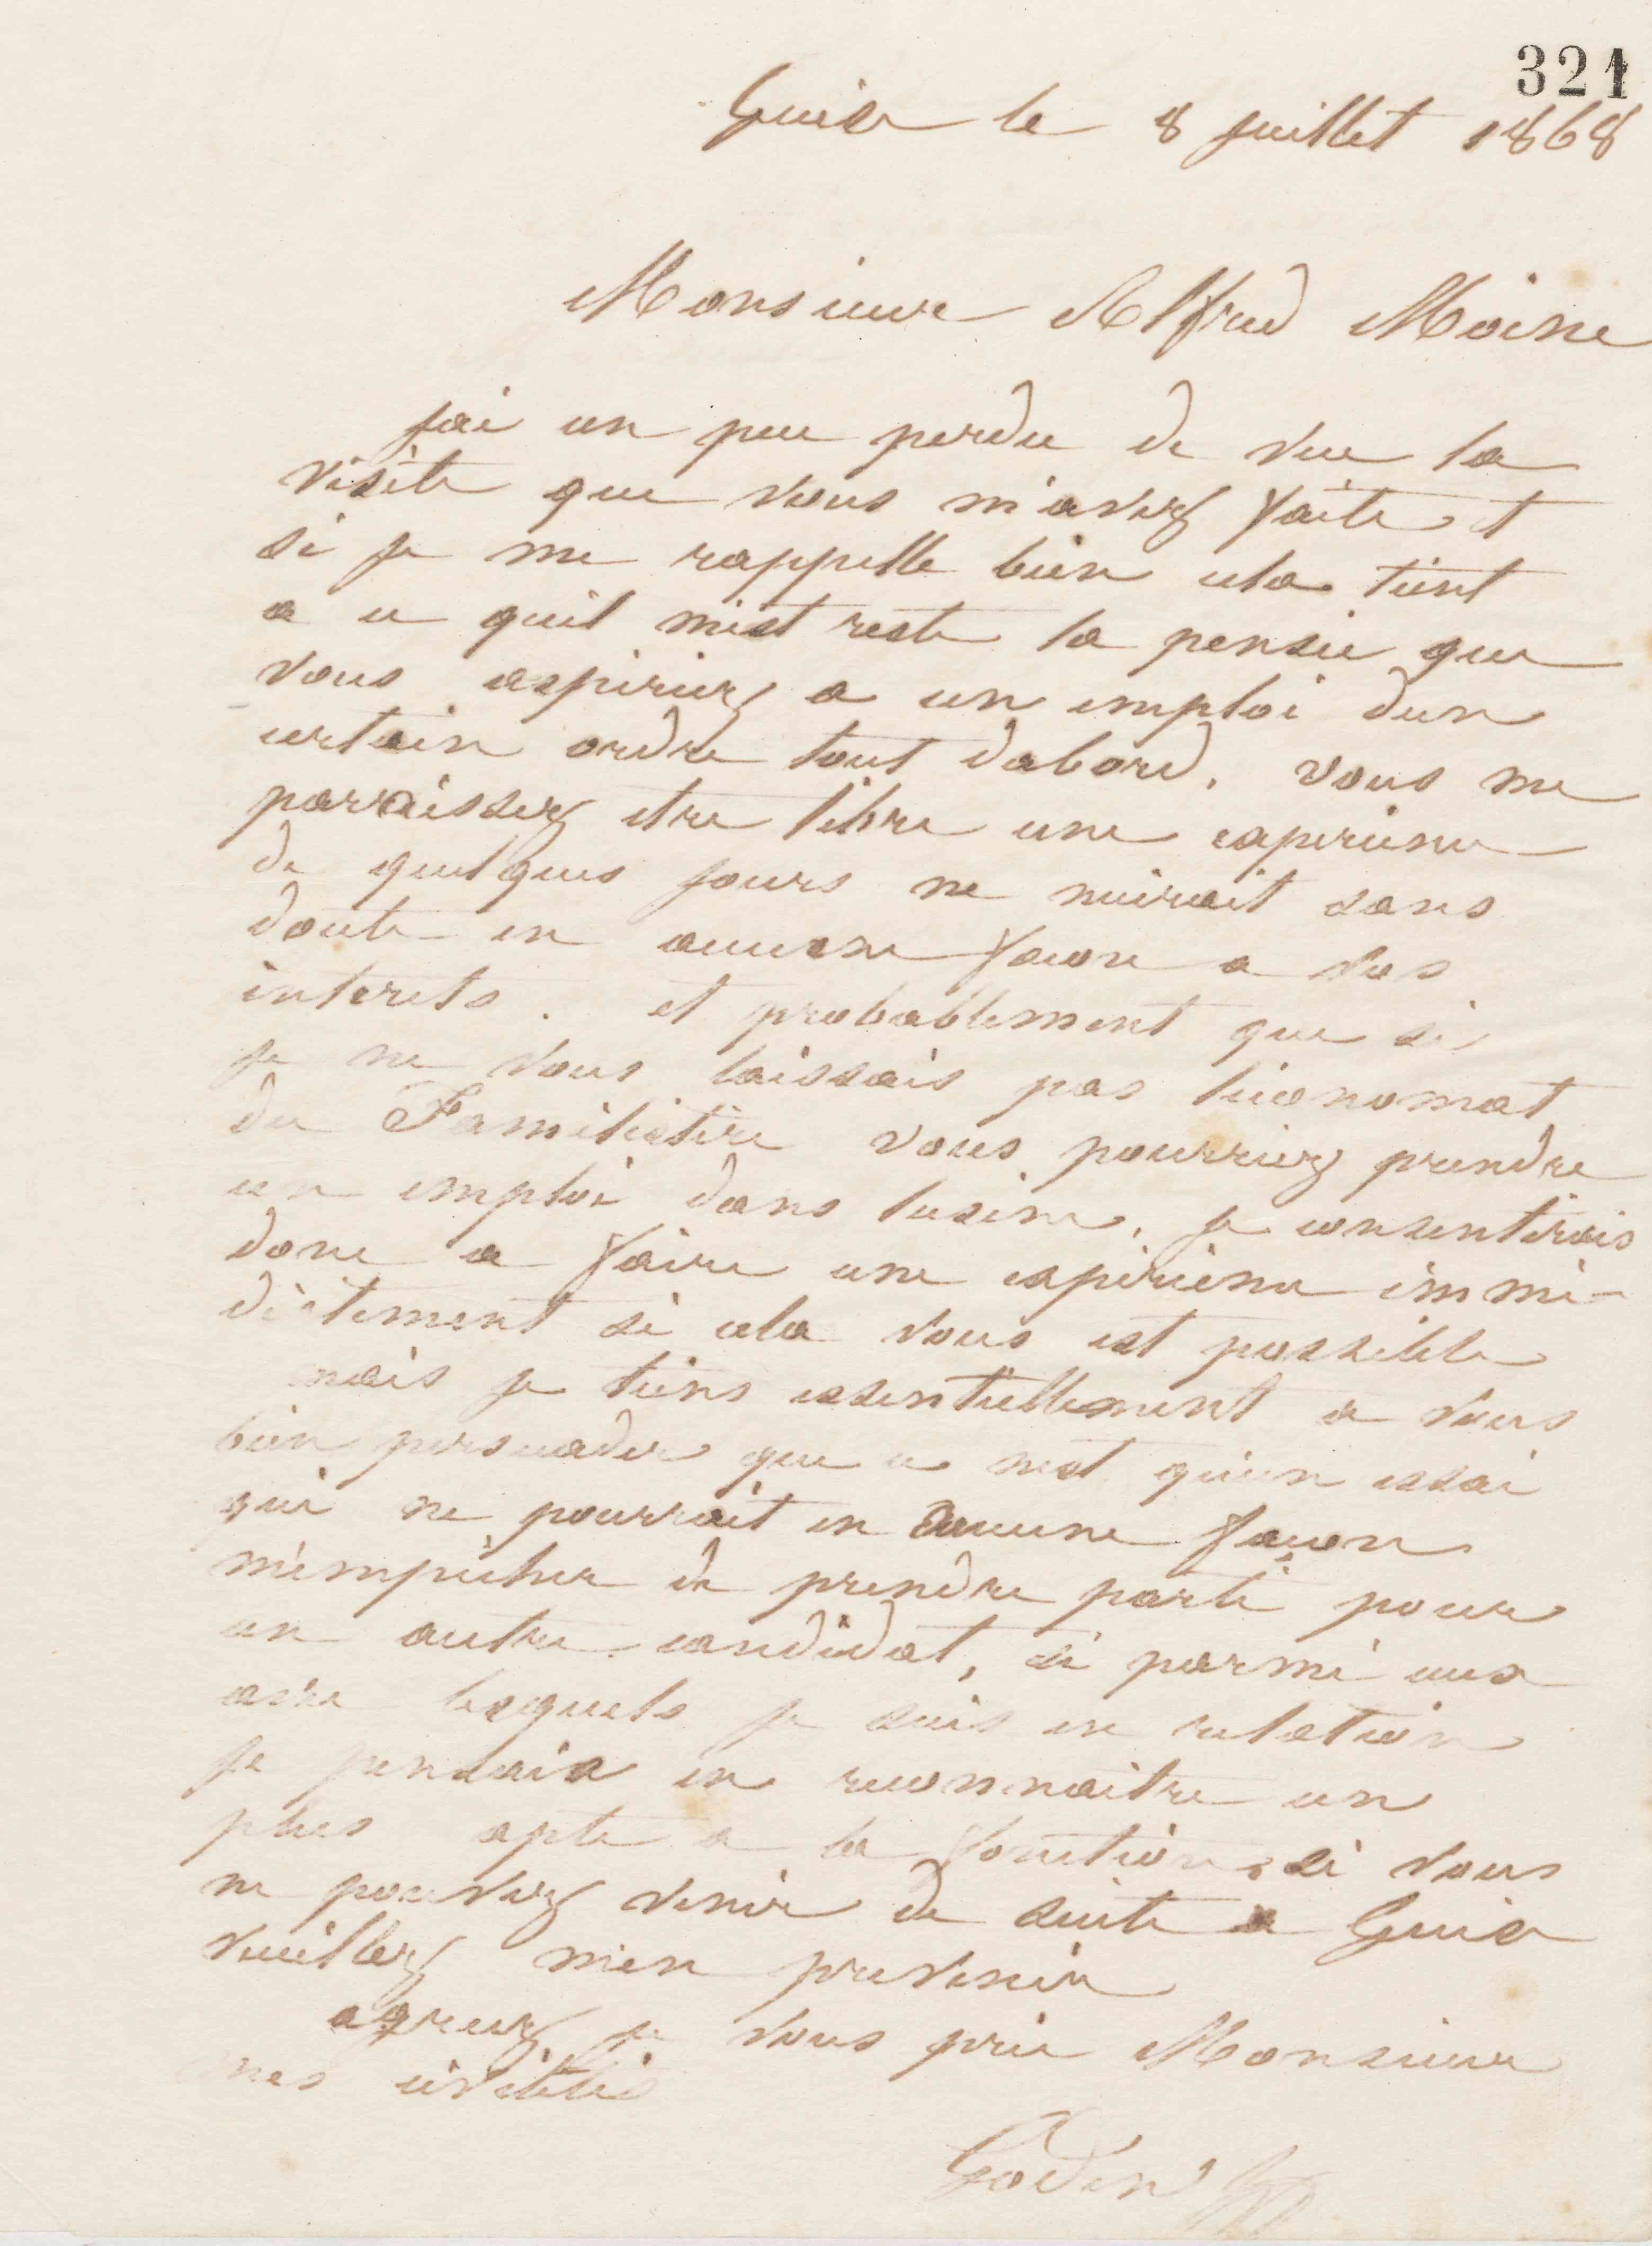 321
Guise le 8 juillet 1868
Monsieur Alfred Moine
jai un peu perdu de vue la
visite que vous m'avez faite et
si je me rappelle bien cela tient
a ce quil mest resté la pensée que
vous aspiriez a un emploi dun
certain ordre tout dabord. vous me
parraissez etre libre une experience
de quelques jours ne nuirait sans
doute en aucune facon a vos
interets. et probablement que si
je ne vous laissais pas léconomat
du Familistère vous pourriez prendre
un emploi dans lusine. je consentirais
donc a faire une expérience immé-
diatement si cela vous est possible
mais je tiens essentiellement a vous
bien persuader que ce nest qu'un essai
qui ne pourrait en aucune facon
m'empêcher de prendre parti pour
un autre candidat, si parmi ceux
avec lesquels je suis en relation
je pensais en reconnaitre un
plus apte a la fonction. si vous
ne pouvez venir de suite a Guise
veuillez m'en prevenir
agreez je vous prie Monsieur
mes civilités
Godin